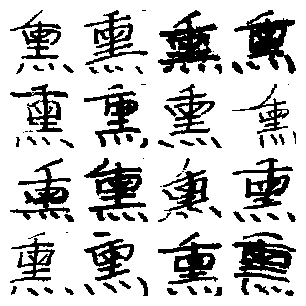 熏熏熏熏
熏熏熏熏
熏熏熏熏
熏熏熏熏